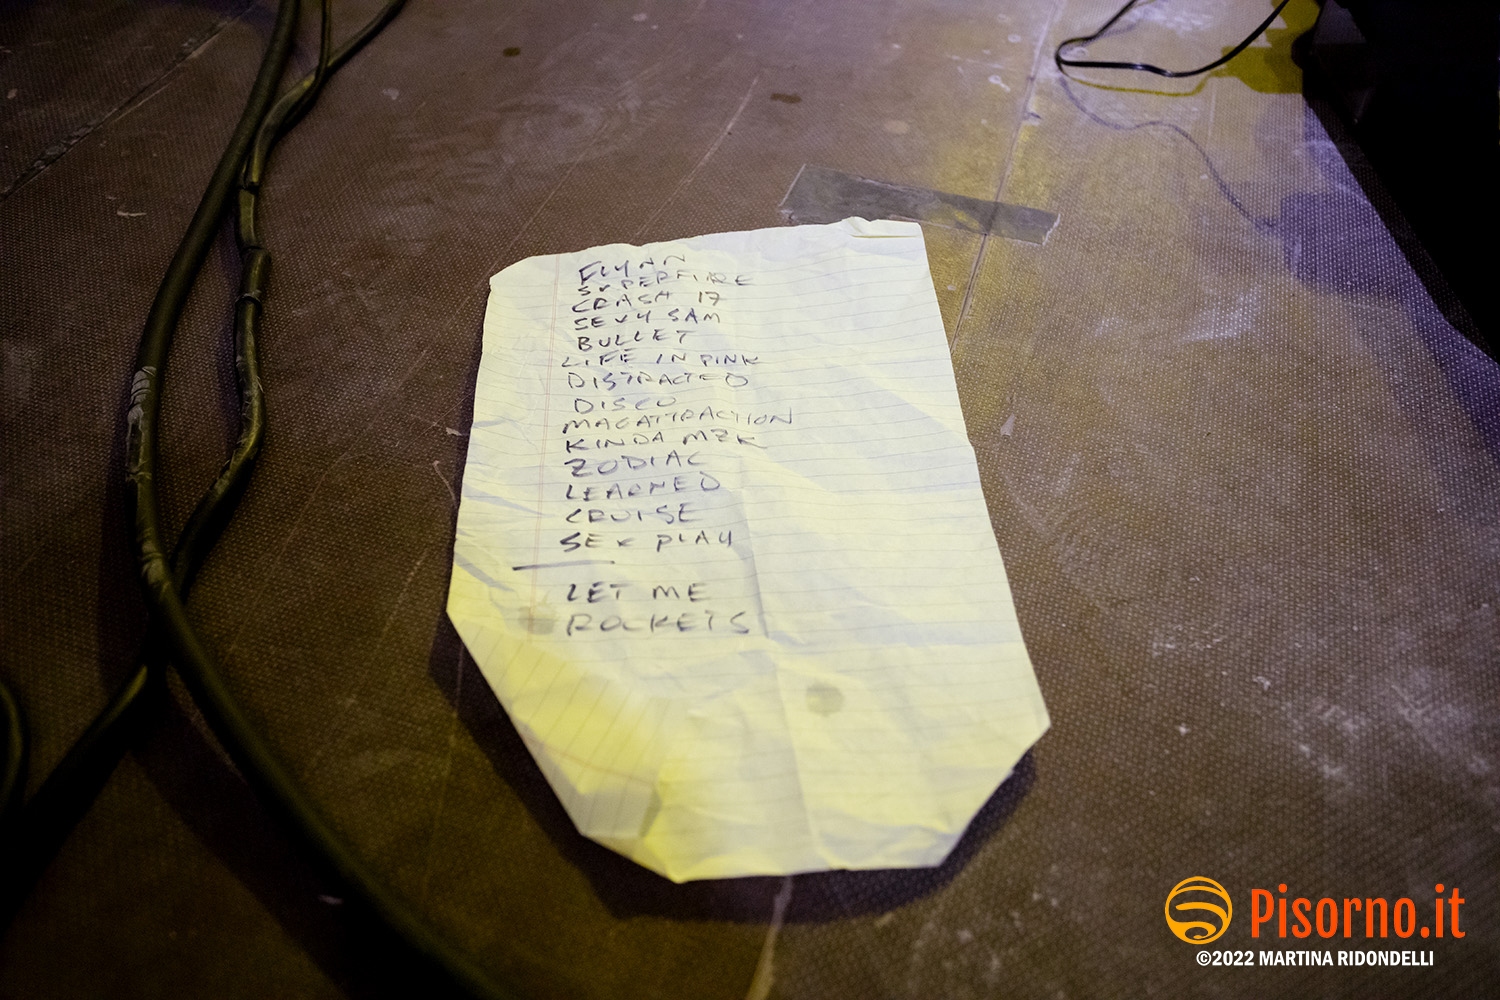 FLYNN
SUPERFIRE
CRASH 17
SEXY SAM
BULLET
LIFE IN PINK
DISTRACTED
DISCO
MAGATTRACTION
KINDA MZK
ZODIAC
LEARNED
CRUISE
SEX PLAY
LET ME
ROCKETS
Pisorno.it
©2022 MARTINA RIDONDELLI